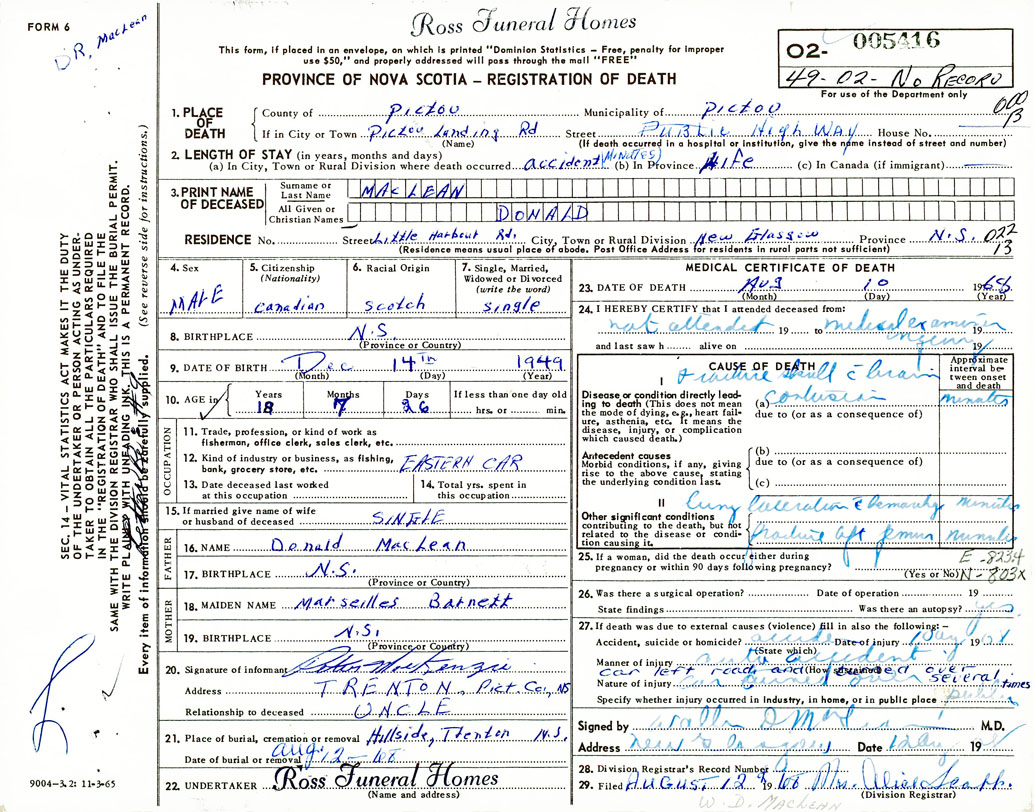 Ross Funeral Homes
FORM 6
DR. MacLean
This form, if placed in an envelope, on which is printed "Dominion Statistics – Free, penalty for improper
use $50," and properly addressed will pass through the mail "FREE"
PROVINCE OF NOVA SCOTIA – REGISTRATION OF DEATH
02- 005416
49-02- No RECORD
For use of the Department only
1. PLACE OF DEATH
County of Pictou Municipality of Pictou
If in City or Town Pictou Landing Rd Street Public High Way House No.
(Name) (If death occurred in a hospital or institution, give the name instead of street and number)
2. LENGTH OF STAY (in years, months and days)
(a) In City, Town or Rural Division where death occurred accident (Minutes) (b) In Province Life (c) In Canada (if immigrant)
3. PRINT NAME OF DECEASED
Surname or Last Name MACLEAN
All Given or Christian Names DONALD
RESIDENCE No. Street Little Harbour Rd. City, Town or Rural Division New Glasgow Province N.S. 022
13
(Residence means usual place of abode. Post Office Address for residents in rural parts not sufficient)
4. Sex
MALE
5. Citizenship
(Nationality)
Canadian
6. Racial Origin
Scotch
7. Single, Married,
Widowed or Divorced
(write the word)
Single
8. BIRTHPLACE N.S.
(Province or Country)
9. DATE OF BIRTH Dec 14TH 1949
(Month) (Day) (Year)
10. AGE in Years Months Days If less than one day old
18 7 26 hrs. or min.
OCCUPATION
11. Trade, profession, or kind of work as
fisherman, office clerk, sales clerk, etc.
12. Kind of industry or business, as fishing,
bank, grocery store, etc. EASTERN CAR
13. Date deceased last worked
at this occupation
14. Total yrs. spent in
this occupation
15. If married give name of wife
or husband of deceased SINGLE
FATHER
16. NAME Donald MacLean
17. BIRTHPLACE N.S.
(Province or Country)
MOTHER
18. MAIDEN NAME Marseilles Barnett
19. BIRTHPLACE N.S.
(Province or Country)
20. Signature of informant MacKenzie
Address TRENTON, Pict. Co., NS
Relationship to deceased UNCLE
21. Place of burial, cremation or removal Hillside, Trenton N.S.
Date of burial or removal Aug 12-68
22. UNDERTAKER Ross Funeral Homes
(Name and address)
MEDICAL CERTIFICATE OF DEATH
23. DATE OF DEATH Aug 10 1968
(Month) (Day) (Year)
24. I HEREBY CERTIFY that I attended deceased from:
not attended 19 to medical examiner
and last saw h alive on 19
CAUSE OF DEATH
Approximate interval between onset and death
I
fracture skull c brain
Disease or condition directly leading
to death (This does not mean
the mode of dying, e.g., heart failure,
asthenia, etc. It means the
disease, injury, or complication
which caused death.)
(a) contusion minutes
due to (or as a consequence of)
Antecedent causes
Morbid conditions, if any, giving
rise to the above cause, stating
the underlying condition last.
(b)
due to (or as a consequence of)
(c)
II
Other significant conditions
contributing to the death, but not
related to the disease or condition
causing it.
Lung laceration & hemorrhage minutes
fracture left femur minutes
25. If a woman, did the death occur either during
pregnancy or within 90 days following pregnancy?
(Yes or No)
E-823.4
N-803X
26. Was there a surgical operation? Date of operation 19
State findings Was there an autopsy? yes
27. If death was due to external causes (violence) fill in also the following:
Accident, suicide or homicide? accident Date of injury
(State which)
Manner of injury accident
car left road and turned over
Nature of injury several times
Specify whether injury occurred in industry, in home, or in public place public
Signed by M.D.
Address New Glasgow Date 12 Aug 19
28. Division Registrar's Record Number
29. Filed AUGUST 12 1968 Mrs. Alice
(Division Registrar)
W. D. MACLEAN
SEC. 14 – VITAL STATISTICS ACT MAKES IT THE DUTY
OF THE UNDERTAKER OR PERSON ACTING AS UNDERTAKER
TO OBTAIN ALL THE PARTICULARS REQUIRED
IN THE "REGISTRATION OF DEATH" AND TO FILE THE
SAME WITH THE DIVISION REGISTRAR WHO SHALL ISSUE THE BURIAL PERMIT.
WRITE PLAINLY WITH UNFADING INK, THIS IS A PERMANENT RECORD.
Every item of information should be carefully supplied. (See reverse side for instructions.)
9004-3.2: 11-3-65